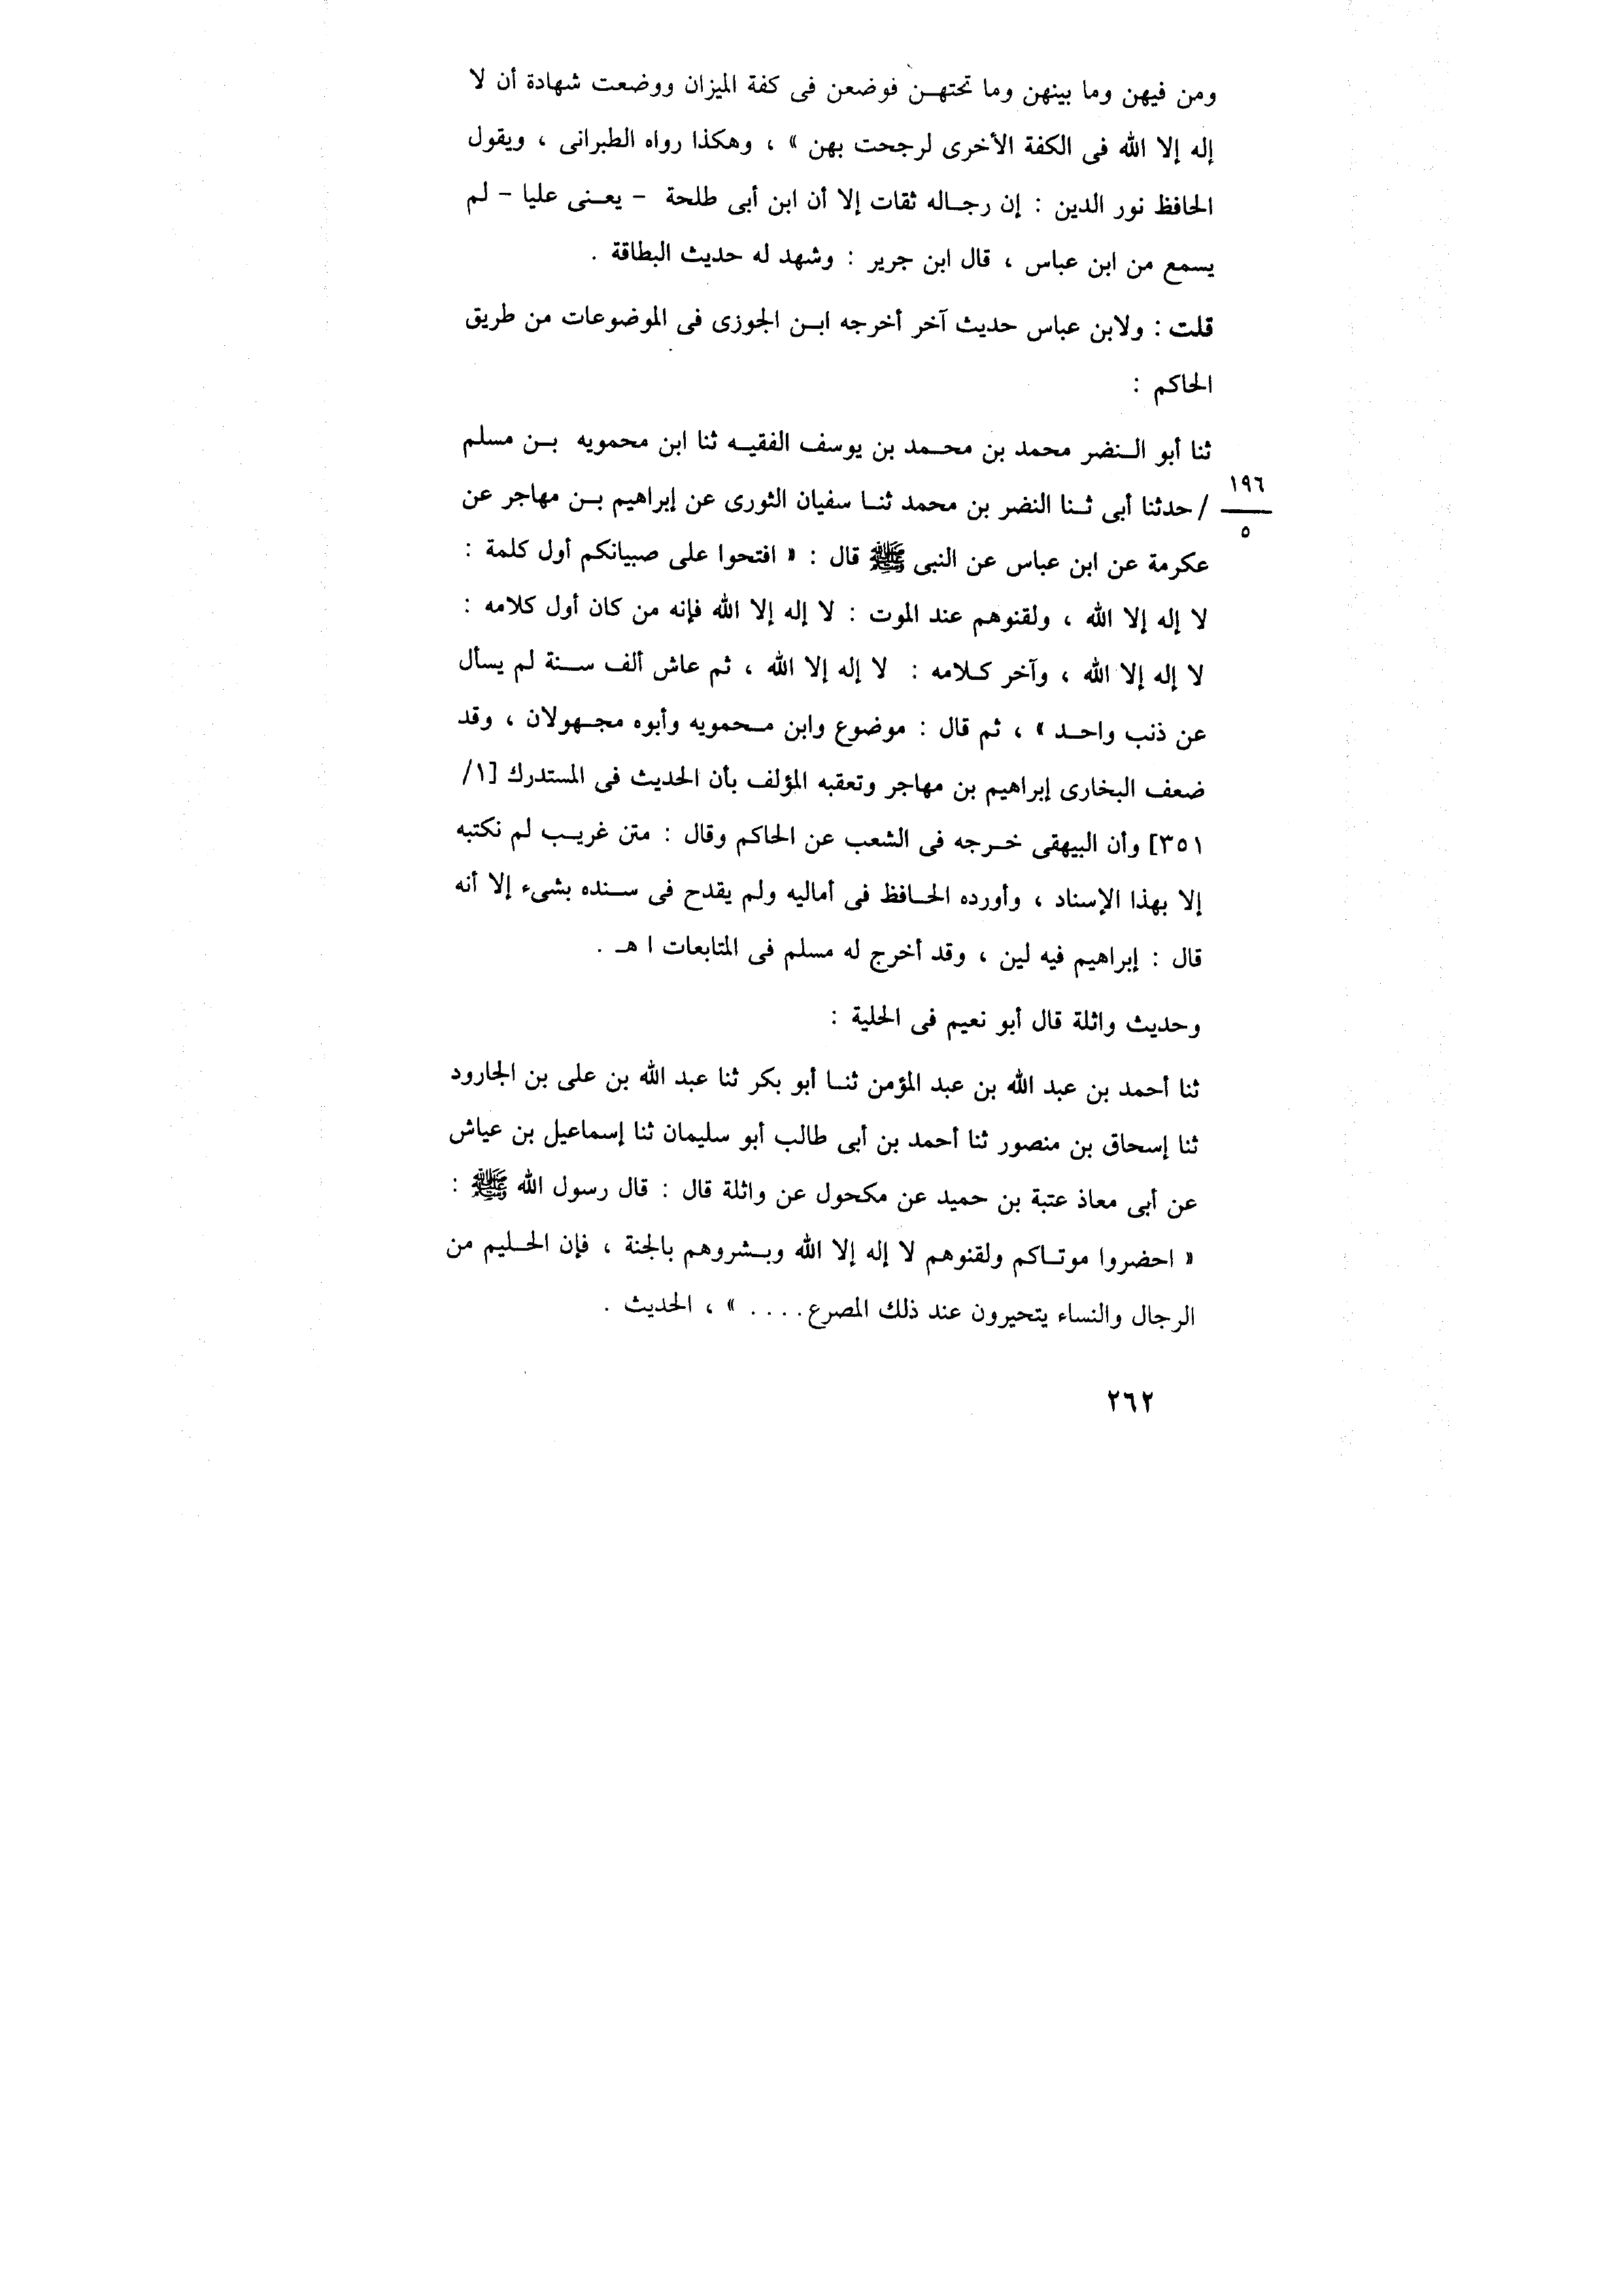 ومن فيهن وما بينهن وما تحتهن فوضعن فى كفة الميزان ووضعت شهادة أن لا
إله إلا الله فى الكفة الأخرى لرجحت بهن » ، وهكذا رواه الطبرانى ، ويقول
الحافظ نور الدين : إن رجاله ثقات إلا أن ابن أبى طلحة - يعنى عليا - لم
يسمع من ابن عباس ، قال ابن جرير : وشهد له حديث البطاقة .
قلت : ولابن عباس حديث آخر أخرجه ابن الجوزى فى الموضوعات من طريق
الحاكم :
ثنا أبو النضر محمد بن محمد بن يوسف الفقيه ثنا ابن محمويه بن مسلم
١٩٦
/ حدثنا أبى ثنا النضر بن محمد ثنا سفيان الثورى عن إبراهيم بن مهاجر عن
٥
عكرمة عن ابن عباس عن النبى ﷺ قال : « افتحوا على صبيانكم أول كلمة :
لا إله إلا الله ، ولقنوهم عند الموت : لا إله إلا الله فإنه من كان أول كلامه :
لا إله إلا الله ، وآخر كلامه : لا إله إلا الله ، ثم عاش ألف سنة لم يسأل
عن ذنب واحد » ، ثم قال : موضوع وابن محمويه وأبوه مجهولان ، وقد
ضعف البخارى إبراهيم بن مهاجر وتعقبه المؤلف بأن الحديث فى المستدرك [١/
٣٥١] وأن البيهقى خرجه فى الشعب عن الحاكم وقال : متن غريب لم نكتبه
إلا بهذا الإسناد ، وأورده الحافظ فى أماليه ولم يقدح فى سنده بشىء إلا أنه
قال : إبراهيم فيه لين ، وقد أخرج له مسلم فى المتابعات ا هـ .
وحديث واثلة قال أبو نعيم فى الحلية :
ثنا أحمد بن عبد الله بن عبد المؤمن ثنا أبو بكر ثنا عبد الله بن على بن الجارود
ثنا إسحاق بن منصور ثنا أحمد بن أبى طالب أبو سليمان ثنا إسماعيل بن عياش
عن أبى معاذ عتبة بن حميد عن مكحول عن واثلة قال : قال رسول الله ﷺ :
« احضروا موتاكم ولقنوهم لا إله إلا الله وبشروهم بالجنة ، فإن الحليم من
الرجال والنساء يتحيرون عند ذلك المصرع.... » ، الحديث .
٢٦٢